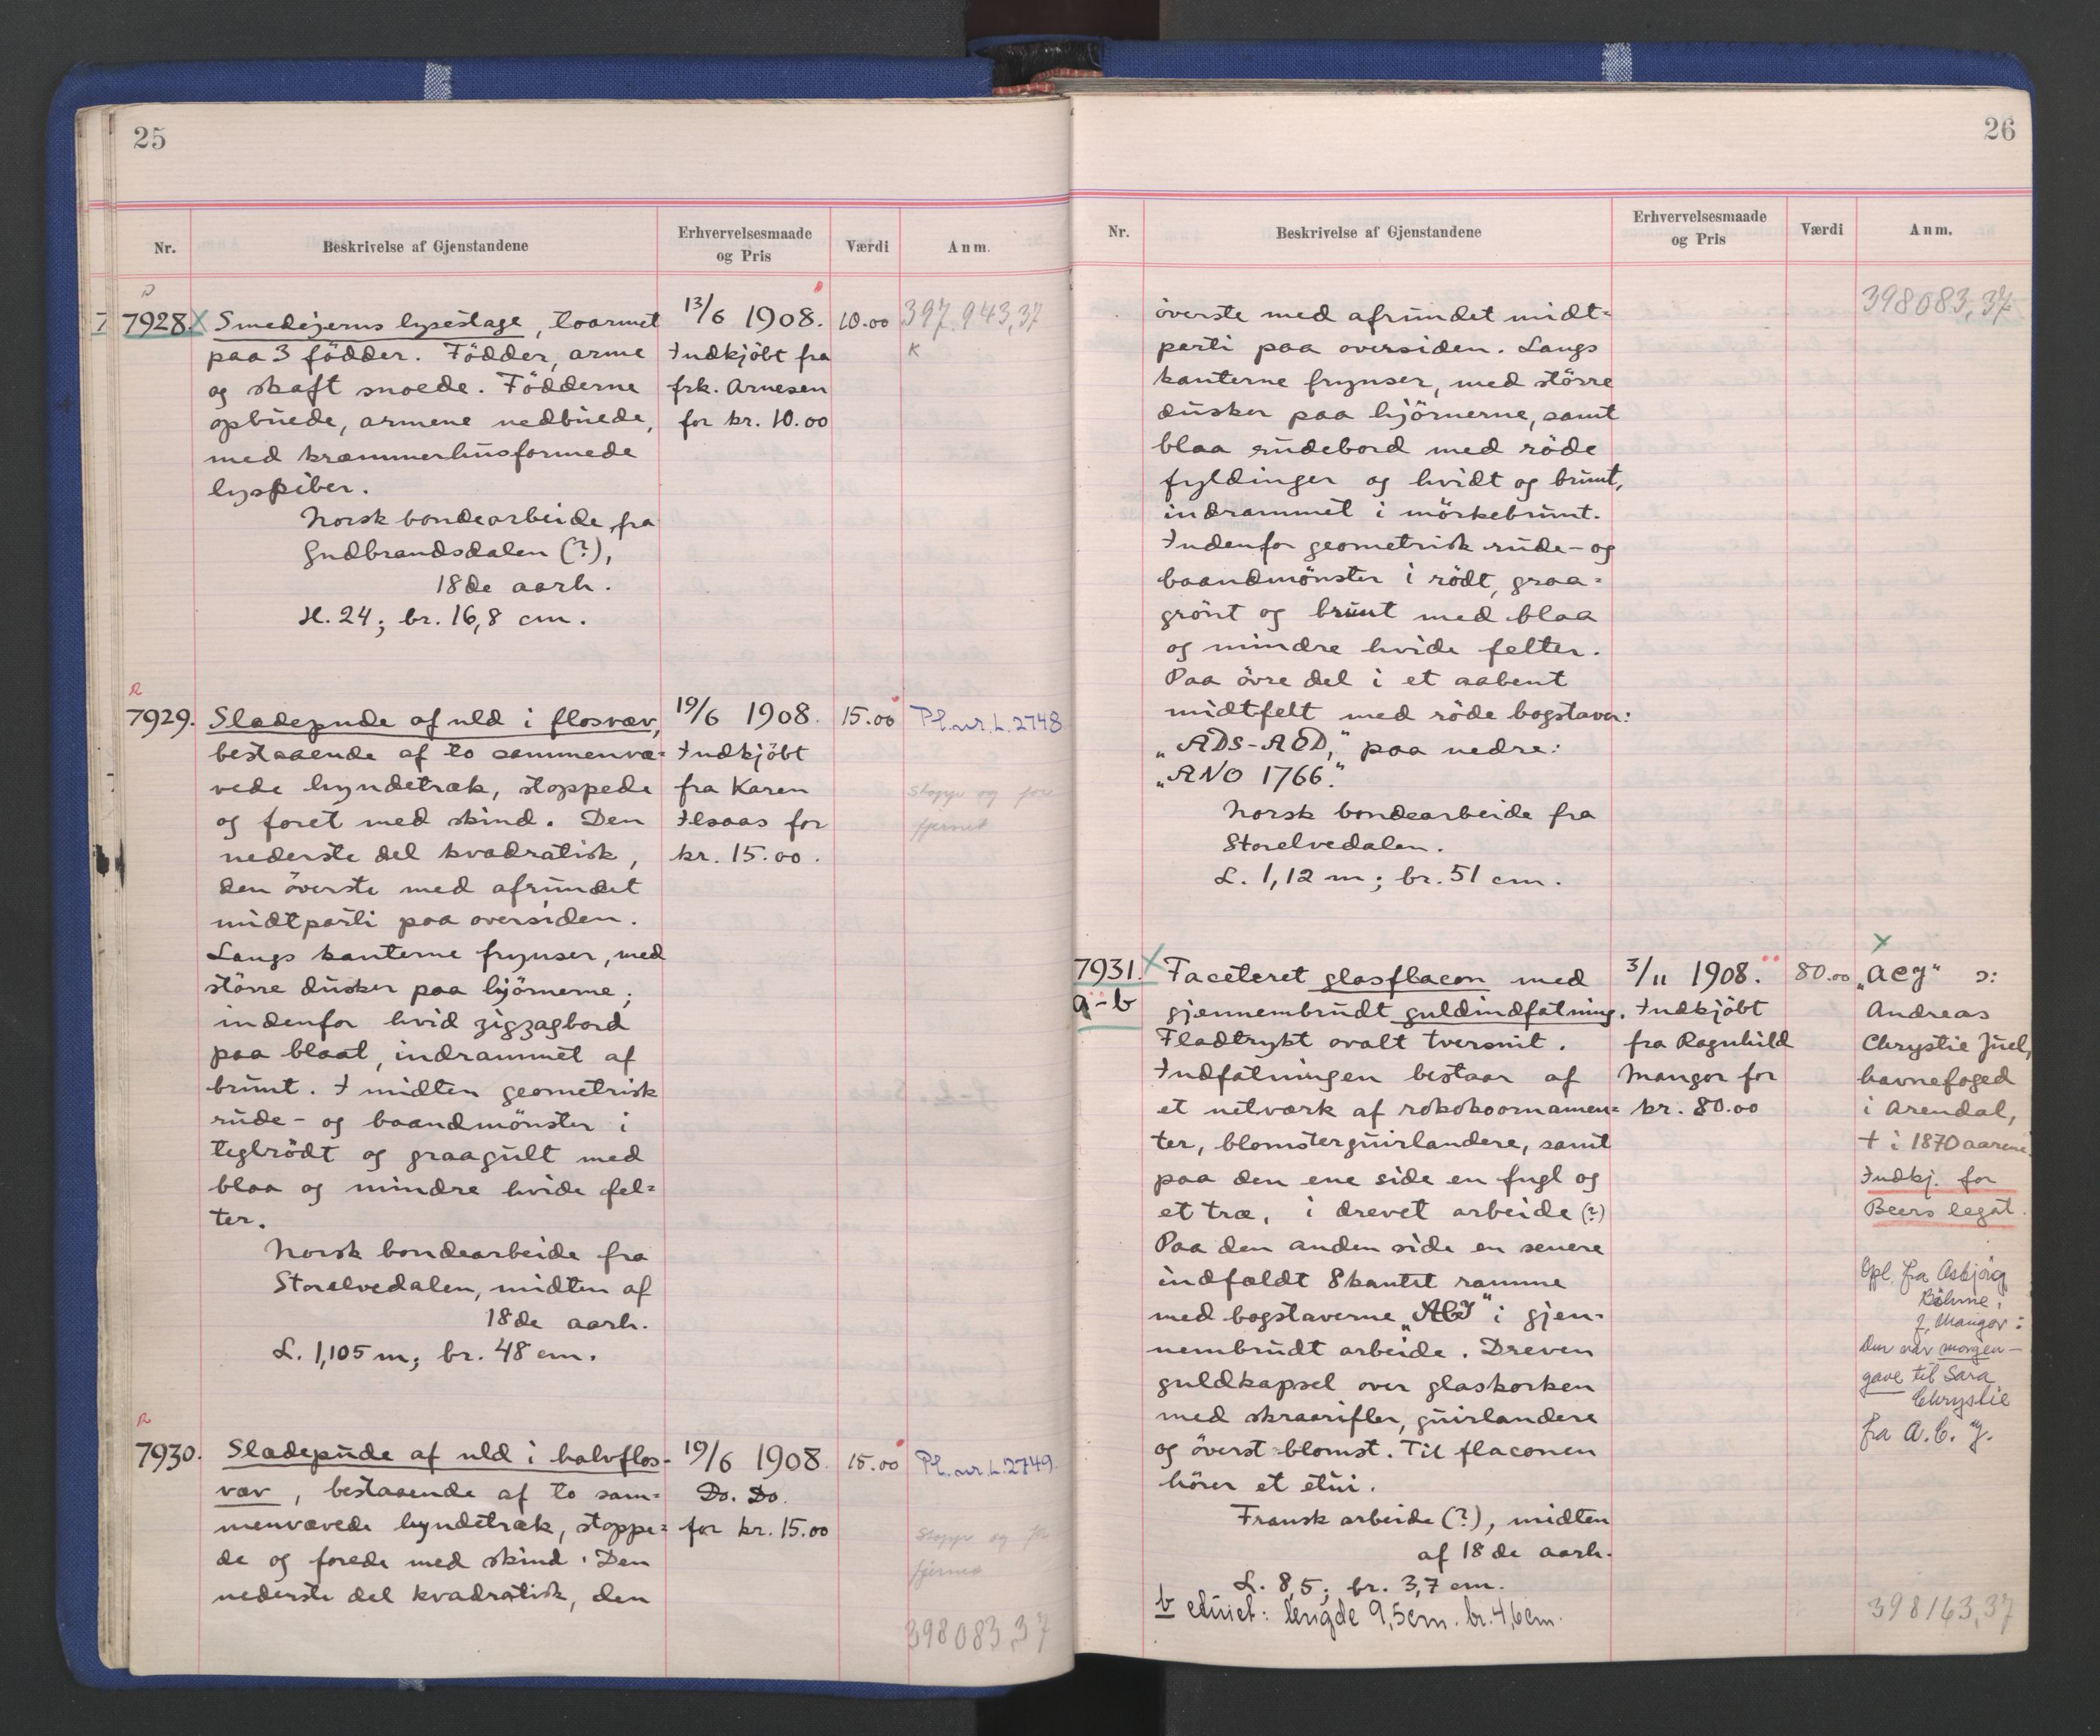 25
Nr.
Beskrivelse af Gjenstandene
Erhvervelsesmaade og Pris
Værdi
Anm.
7928. X Smedejerns lysestage, toarmet
paa 3 födder. Födder, arme
og skaft snoede. Födderne
opbuede, armene nedbuede,
med kræmmerhusformede
lyspiber.
Norsk bondearbeide fra
Gudbrandsdalen (?),
18de aarh.
H. 24; br. 16,8 cm.
13/6 1908.
Indkjöbt fra
frk. Arnesen
for kr. 10.00
10.00
397.943,37
K
R
7929. Slædepude af uld i flosvæv,
bestaaende af to sammenvæ=
vede hyndetræk, stoppede
og foret med skind. Den
nederste del kvadratisk,
den överste med afrundet
midtparti paa oversiden.
Langs kanterne frynser, med
större dusker paa hjörnerne;
indenfor hvid zigzagbord
paa blaat, indrammet af
brunt. I midten geometrisk
rude- og baandmönster i
teglrödt og graagult med
blaa og mindre hvide fel=
ter.
Norsk bondearbeide fra
Storelvedalen, midten af
18de aarh.
L. 1,105 m; br. 48 cm.
19/6 1908.
Indkjöbt
fra Karen
Ilsaas for
kr. 15.00.
15.00
Pl.nr. L. 2748
Stopp og for
fjernet
R
7930. Slædepude af uld i halvflos-
væv, bestaaende af to sam=
menvævede hyndetræk, stoppe=
de og forede med skind. Den
nederste del kvadratisk, den
19/6 1908.
Do. Do.
for kr. 15.00
15.00
Pl.nr. L. 2749.
Stopp og for
fjernet
398083,37
26
Nr.
Beskrivelse af Gjenstandene
Erhvervelsesmaade og Pris
Værdi
Anm.
398083,37
överste med afrundet midt=
parti paa oversiden. Langs
kanterne frynser, med större
dusker paa hjörnerne, samt
blaa rudebord med röde
fyldinger og hvidt og brunt,
indrammet i mörkebrunt.
Indenfor geometrisk rude- og
baandmönster i rödt, graa=
grönt og brunt med blaa
og mindre hvide felter.
Paa övre del i et aabent
midtfelt med röde bogstaver:
„ADS-AOD," paa nedre:
„ANO 1766."
Norsk bondearbeide fra
Storelvedalen.
L. 1,12 m; br. 51 cm.
7931. X Faceteret glasflacon med
a-b gjennembrudt guldindfatning.
Fladtrykt ovalt tversnit.
Indfatningen bestaar af
et netværk af rokokoornamen=
ter, blomsterguirlandere, samt
paa den ene side en fugl og
et træ, i drevet arbeide (?)
Paa den anden side en senere
indfældt 8kantet ramme
med bogstaverne „ACJ" i gjen-
nembrudt arbeide. Dreven
guldkapsel over glaskorken
med skraarifler, guirlandere
og överst blomst. Til flaconen
hörer et etui.
Fransk arbeide (?), midten
af 18de aarh.
L. 8,5; br. 3,7 cm.
b etuiet: lengde 9,5cm. br. 4,6cm.
3/11 1908.
Indkjöbt
fra Ragnhild
Mangor for
kr. 80.00
80.00
X
„ACJ" ɔ:
Andreas
Chrystie Juel,
havnefoged
i Arendal,
† i 1870aarene.
Indkj. for
Beers legat.
Opl. fra Asbjörg
Böhme,
f. Mangor:
Den var morgen-
gave til Sara
Chrystie
fra A. C. J.
398163,37